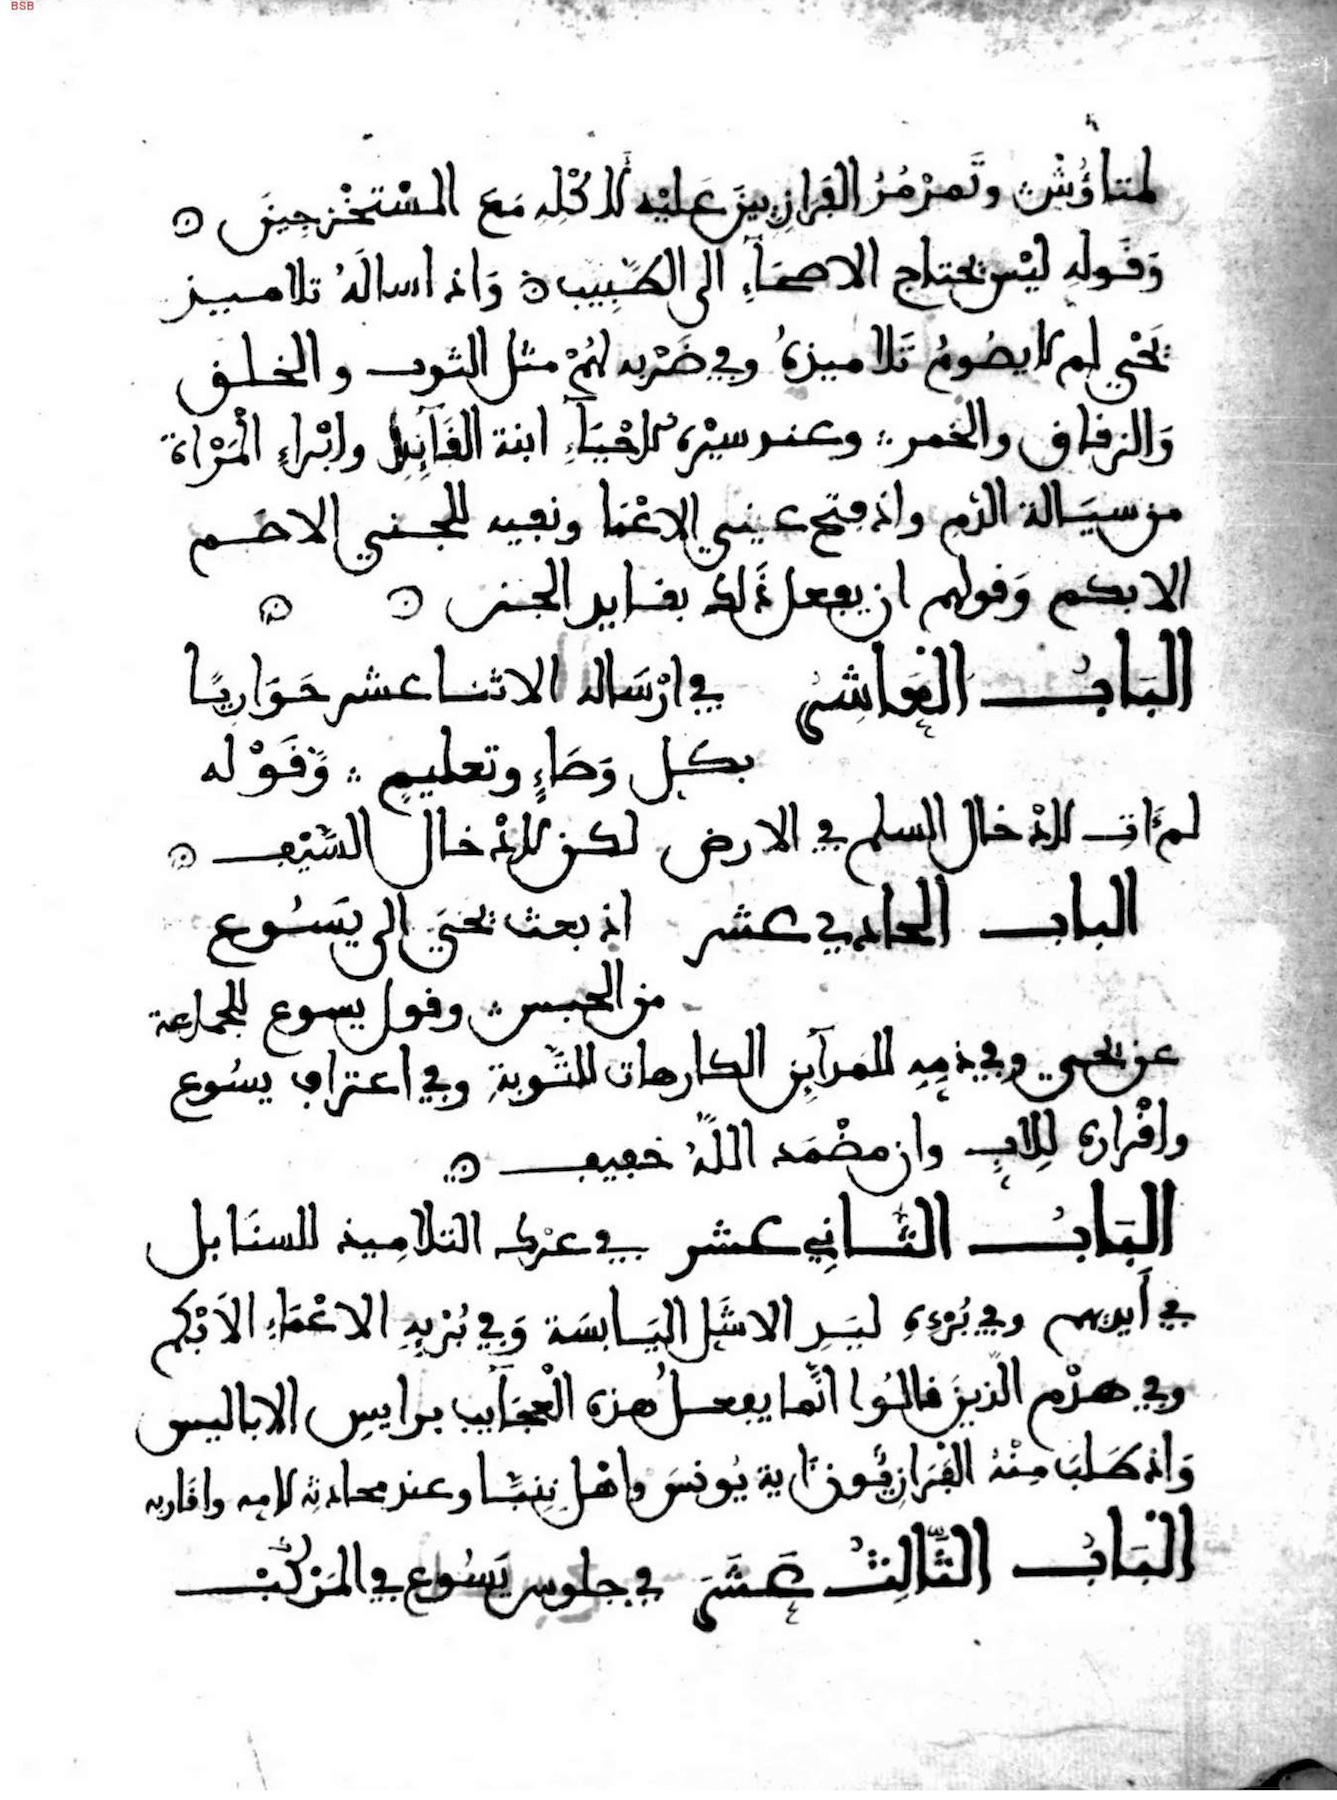 BSB
لمتاؤُشْ وتَمَرْمُرُ الفَرَازِيينَ عَلَيْهِ لأكْلِهِ مَعَ المسْتخْرِجِينَ
وَقَولِهِ ليْس يحتاج الاصحَآءِ الى الطَبِيب وَاذ اسالَهُ تلاميذ
يَحْيي لم لا يصُومُ تَلاميذهُ وفي ضَرْبه لهُمْ مثل الثوب والخلق
وَالزقاق والخمر وعند سيْره لاحْيَآءِ ابنة القَآئِد وابْراءِ المَرْاة
من سيَالة الدم واذ فتح عيني الاعْمَا ونفيه للجني الاصم
الابكم وَقولهم ان يفعل ذَلك بقايد الجن
البَابُ العَاشِرُ في ارْسَاله الاثنا عشر حَوَارِيًا
بكل وَصَاءٍ وتعليمٍ وَقَوْله
لم ءَات لادْخال السلم في الارض لكن لادْخال السَّيْف
الباب الحادي عشر اذ بعث يحيَى الى يَسُوع
من الحبس وقول يسوع للجماعة
عن يحيى وفي ذمِهِ للمدَآين الكارهات للتَّوبةِ وفي اعتراف يسُوع
واقْراره لِلابِ وان مضْمَد اللَّهُ خفيف
البَابُ الثَّانِي عشر في عرْك التلامِيذ للسنَابل
في أَيديهم وفي بُرْءِهِ ليَدِ الاشَل اليَابسَة وَفي بُرْيِهِ الاعْمَاءِ الاَبْكم
وفي هدْم الذينَ قالُوا انَّما يفعلُ هذه الْعجَآيب برايسِ الاباليس
وَاذ طَلبَ مِنْهُ الفَرَازِيُّونَ ءَاية يُونسَ واهْل نينبَّا وعند محادثة لامه واقاربه
الْبَابُ الثَّالِثُ عَشَرَ في جلوس يَسُوع في المَرْكَبْ